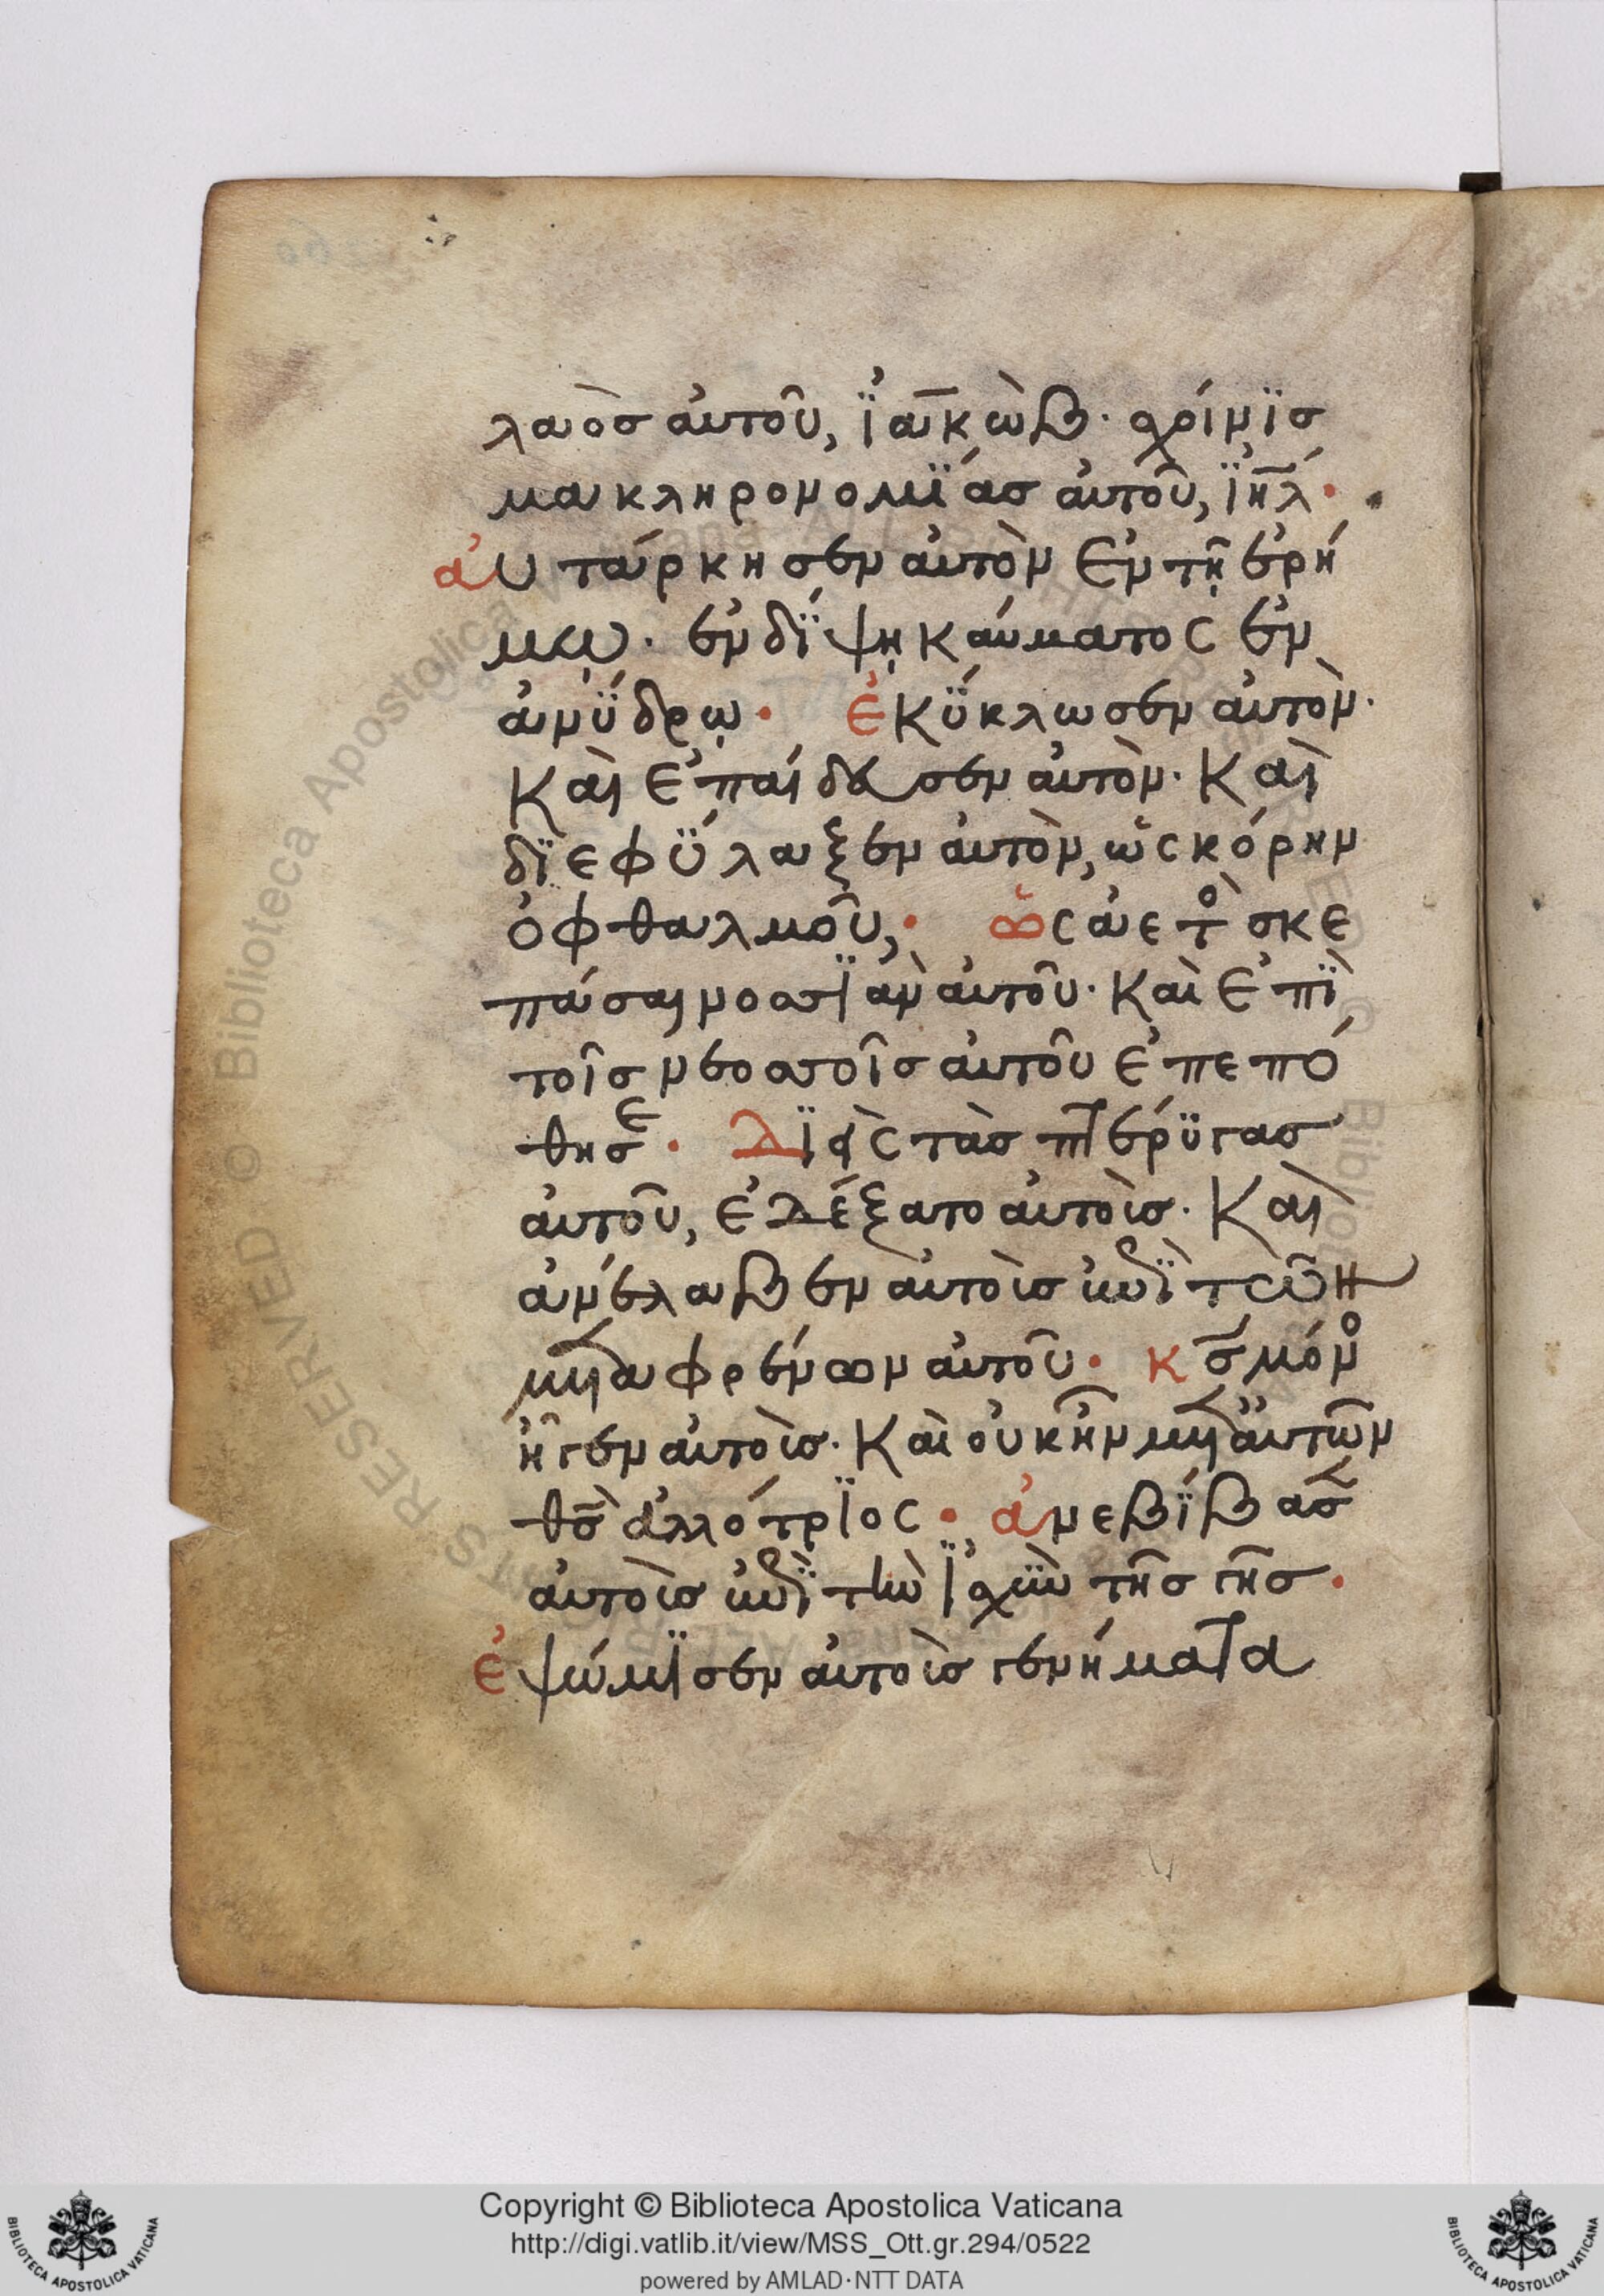 λαὸσ ἀυτοῦ, ϊἀκὼβ· σχοίνϊσ
μα κληρονομϊάσ ἀυτοῦ, ϊη̅λ·
ἀυτάρκησεν ἀυτὸν ἐν τῆ ἐρή
μῳ· ἐν δίψῃ κάυματος ἐν
ἀνύδρῳ· ἐκύκλωσεν ἀυτὸν·
καὶ ἐπάιδευσεν ἀυτὸν· καὶ
δϊεφύλαξεν ἀυτὸν, ὡς κόρην
ὀφθαλμοῦ,· ὡς ἀετὸ σκε
πάσαι νοσϊὰν ἀυτοῦ· καὶ ἐπὶ
τοῖσ νεοσοῖσ ἀυτοῦ ἐπεπό
θησε· Δϊεὶς τὰσ πτέρϋγασ
ἀυτοῦ, ἐδέξατο ἀυτοὺσ· καὶ
ἀνέλαβεν ἀυτοὺσ ἐπὶ τῶν
μεταφρένων ἀυτοῦ· κ̅σ̅ μόνο
ἦγεν ἀυτοὺσ· καὶ οὐκ ἦν μετ ἀυτῶν
θ̅σ̅ ἀλλότρϊος· ἀνεβίβασ
ἀυτοὺσ ἐπὶ τὴν ϊσχὺν τῆσ γῆσ·
ἐψώμϊσεν ἀυτοὺσ γενήματα
Copyright © Biblioteca Apostolica Vaticana
http://digi.vatlib.it/view/MSS_Ott.gr.294/0522
powered by AMLAD·NTT DATA
BIBLIOTECA APOSTOLICA VATICANA
BIBLIOTECA APOSTOLICA VATICANA